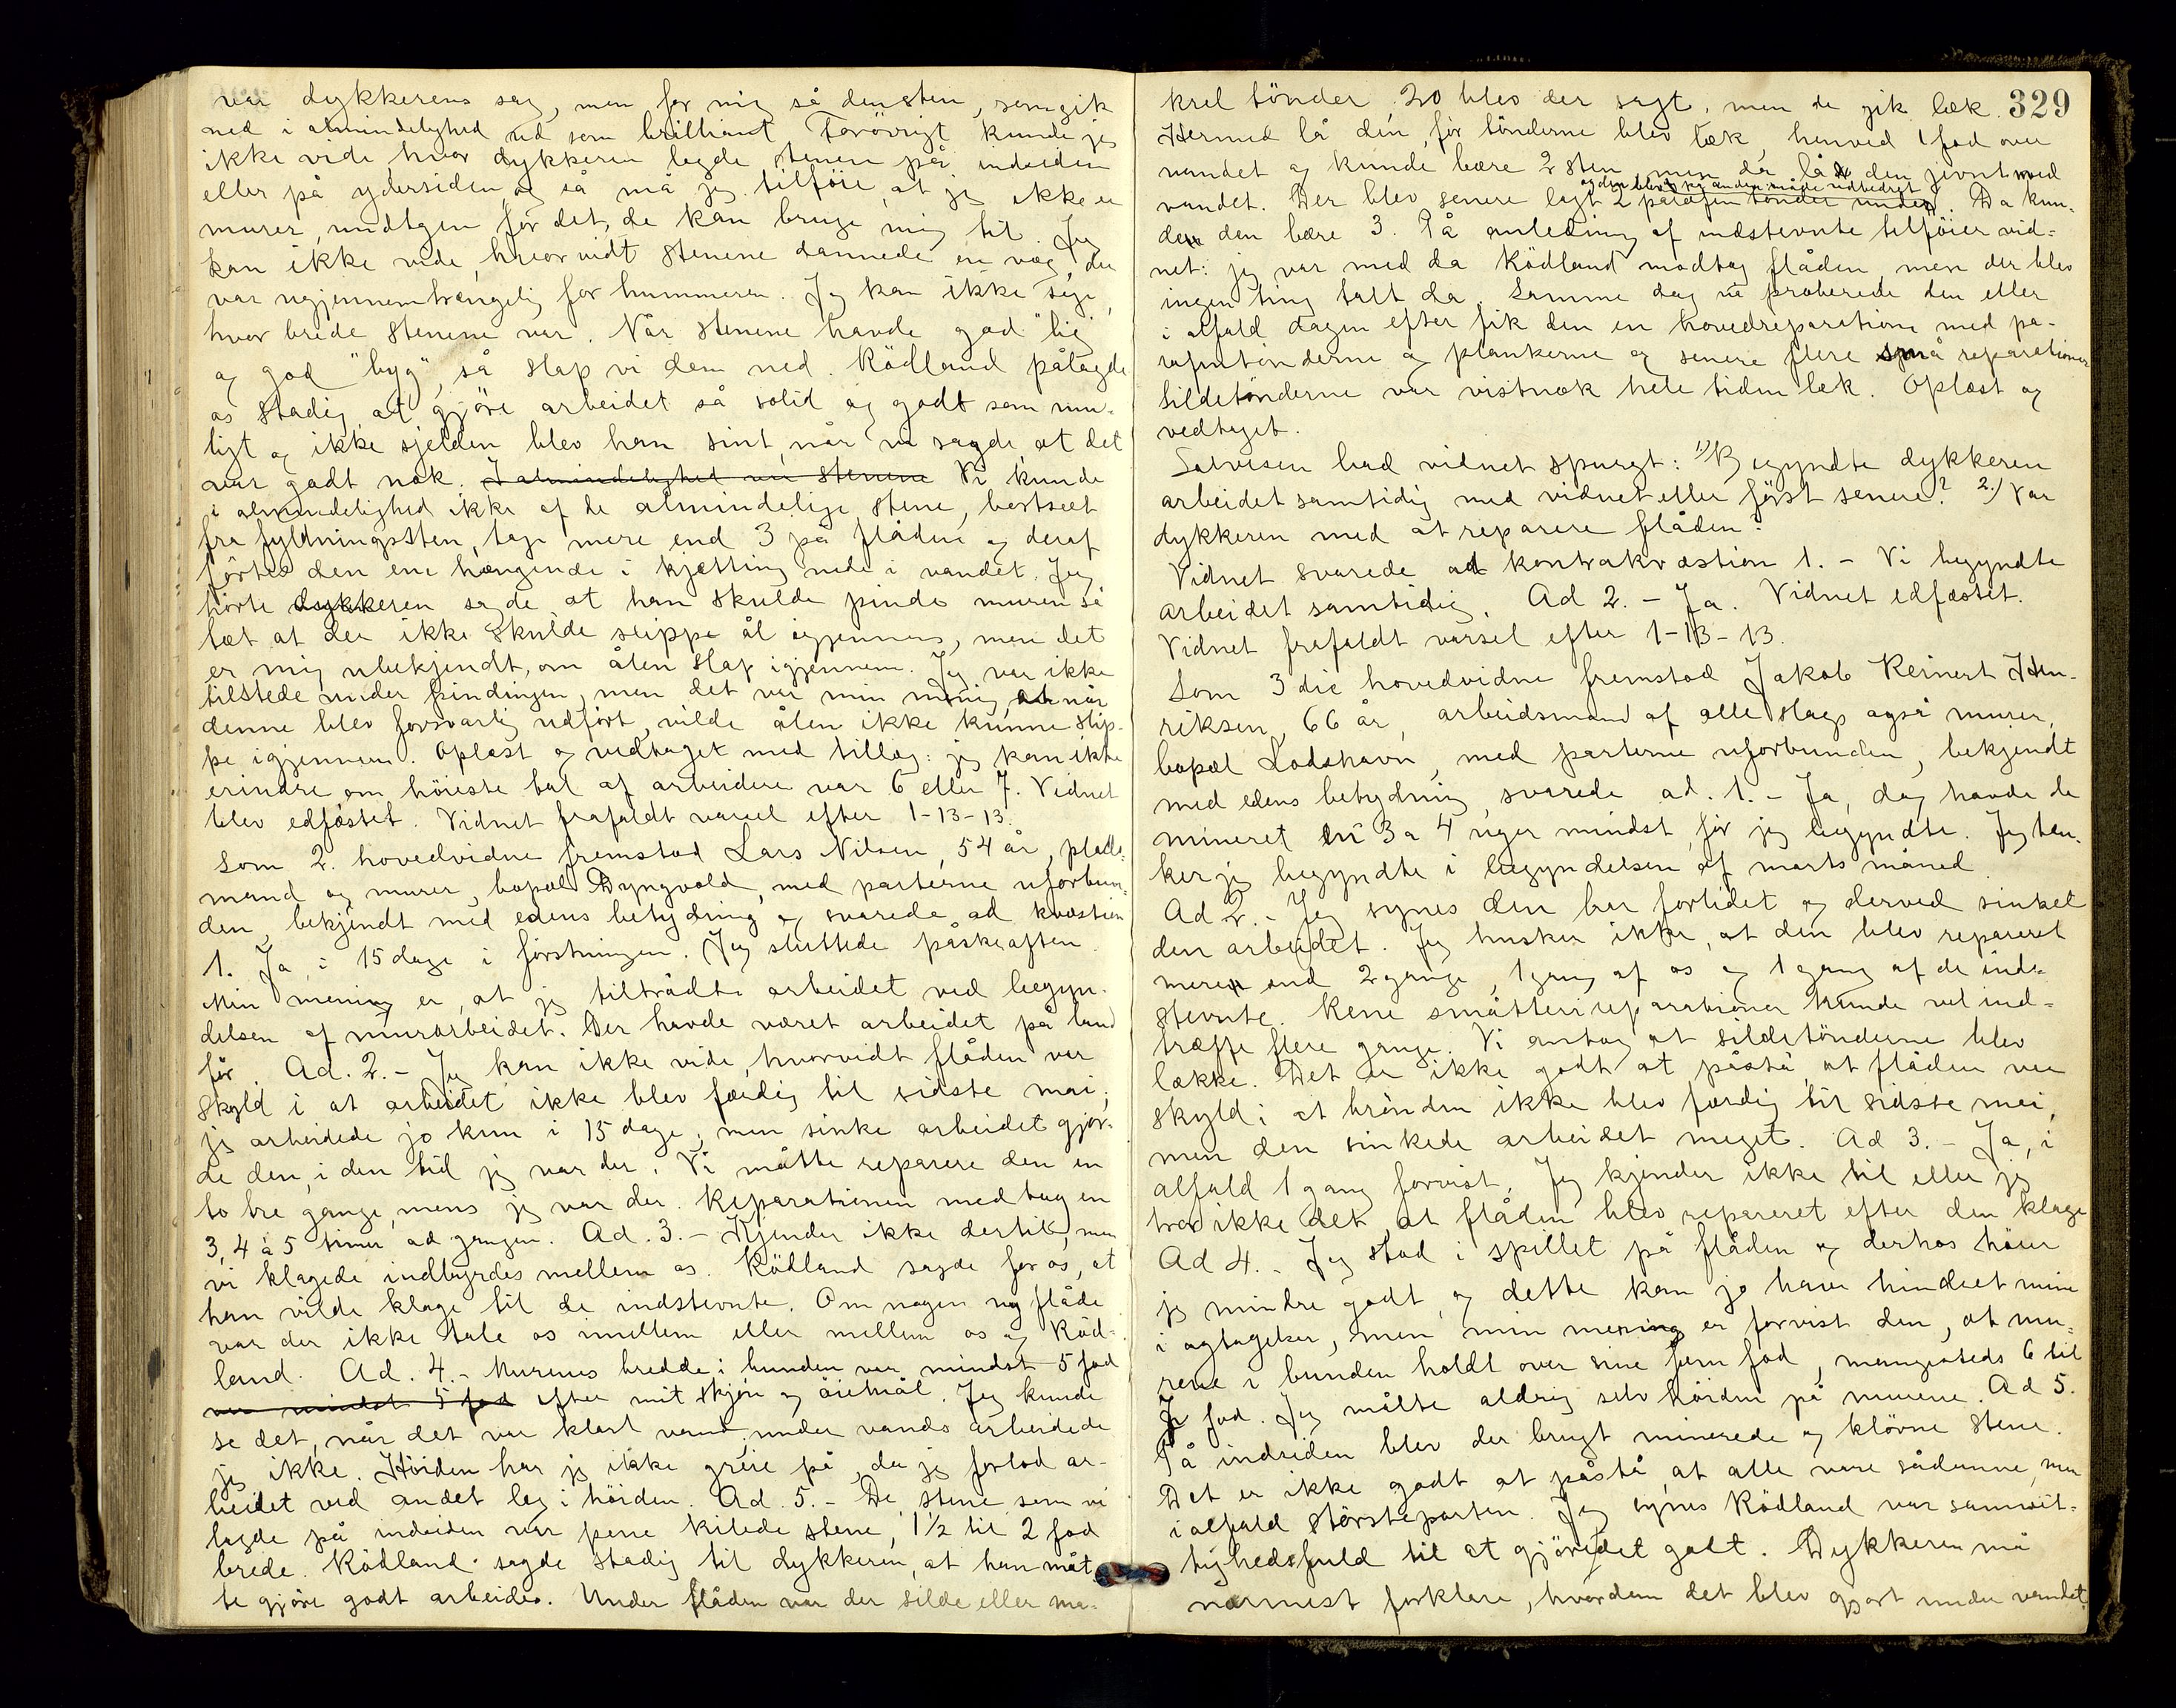 var dykkerens sag, men for mig så den sten, som gik
ned i almindelighed ud som brilliant Forövrigt kunde jeg
ikke vide hvor dykkeren lagde stenen på indsiden
eller på ydersiden, og så må jeg tilföie, at jeg ikke er
murer, undtagen for det, de kan bruge mig til. Jeg
kan ikke vide, hvorvidt stenene dannede en væg, der
var ugjennemtrængelig for hummeren. Jeg kan ikke sige,
hvor brede stenene var. Når stenene havde god "lig"
og god "byg", så slap vi dem ned. Rödland pålagde
os stadig at gjöre arbeidet så solid og godt som mu-
ligt og ikke sjelden blev han sint, når vi sagde, at det
var godt nok. I almindelighed var stenene Vi kunde
i almindelighed ikke af de almindelige stene, bortseet
fra fyldningssten, tage mere end 3 på flåden og deraf
förtes den ene hængende i kjætting nede i vandet. Jeg
hörte dykkeren sagde, at han skulde pinde muren så
tæt at der ikke skulde slippe ål igjennem, men det
er mig ubekjendt, om ålen slap igjennem. Jeg var ikke
tilstede under pindingen, men det var min mening, at når
denne blev forsvarlig udfört, vilde ålen ikke kunne slip-
pe igjennem. Oplæst og vedtaget med tillæg: jeg kan ikke
erindre om höieste tal af arbeidere var 6 eller 7. Vidnet
blev edfæstet. Vidnet frafaldt varsel efter 1-13-13.
Som 2. hovedvidne fremstod Lars Nilsen, 54 år, plads-
mand og murer, bopæl Dyngvold, med parterne uforbun-
den, bekjendt med edens betydning og svarede ad kvæstion
1. Ja, i 15 dage i förstningen. Jeg sluttede påskeaften.
Min mening er, at jeg tiltrådte arbeidet ved begyn-
delsen af murarbeidet. Der havde været arbeidet på land
för. Ad. 2. - Jeg kan ikke vide, hvorvidt flåden var
skyld i at arbeidet ikke blev færdig til sidste mai;
jeg arbeidede jo kun i 15 dage; men sinke arbeidet gjor-
de den, i den tid jeg var der. Vi måtte reparere den en
to tre gange, mens jeg var der. Reparationen medtog en
3, 4 à 5 timer ad gangen. Ad. 3. - Kjender ikke dertil, men
vi klagede indbyrdes mellem os. Rödland sagde for os, at
han vilde klage til de indstevnte. Om nogen ny flåde
var der ikke tale os imellem eller mellem os og Röd-
land. Ad. 4. - Murenes bredde i bunden var mindst 5 fod
var mindst 5 fod efter mit skjön og öiemål. Jeg kunde
se det, når det var klart vand; under vands arbeidede
jeg ikke. Höiden har jeg ikke greie på, da jeg forlod ar-
beidet ved andet lag i höiden. Ad. 5. - De stene som vi
lagde på indsiden var pene kilede stene, 1½ til 2 fod
brede. Rödland sagde stadig til dykkeren, at han måt-
te gjöre godt arbeide. Under flåden var der silde eller ma-
329
krel tönder, 20 blev der sagt, men de gik læk.
Hermed lå den, för tönderne blev læk, henved 1 fod over
vandet og kunde bære 2 sten, men da lå den jevnt med
og den blev på anden måde udbedret
vandet. Der blev senere lagt 2 parafin tönder under. Da kun-
de den bære 3. På anledning af indstevnte tilföier vid-
net: jeg var med da Rödland modtog flåden, men der blev
ingen ting talt da. Samme dag vi proberede den eller
i alfald dagen efter fik den en hovedreparation med pa-
rafintönderne og plankerne og senere flere små reparationer
Sildetönderne var vistnok hele tiden læk. Oplæst og
vedtaget.
Salvesen bad vidnet spurgt: 1) Begyndte dykkeren
arbeidet samtidig med vidnet eller först senere? 2.) Var
dykkeren med at reparere flåden?
Vidnet svarede ad kontrakvæstion 1. - Vi begyndte
arbeidet samtidig. Ad 2. - Ja. Vidnet edfæstet.
Vidnet frafaldt varsel efter 1-13-13.
Som 3die hovedvidne fremstod Jakob Reinert Hen-
riksen, 66 år, arbeidsmand af alle slags også murer,
bopæl Lodshavn, med parterne uforbunden, bekjendt
med edens betydning, svarede ad. 1. - Ja, dog havde de
mineret en 3 a 4 uger mindst, för jeg begyndte. Jeg tæn-
ker jeg begyndte i begyndelsen af marts måned.
Ad 2. - Jeg synes den har fortidet og derved sinket
den arbeidet. Jeg husker ikke, at den blev repareret
mere end 2 gange, 1 gang af os og 1 gang af de ind-
stevnte. Rene småtterireparationer kunde vel ind-
træffe flere gange. Vi antog at sildetönderne blev
lække. Det er ikke godt at påstå, at flåden var
skyld i at brönden ikke blev færdig til sidste mai,
men den sinkede arbeidet meget. Ad 3. - Ja, i
alfald 1 gang forvist. Jeg kjender ikke til eller jeg
tror ikke det, at flåden blev repareret efter den klage
Ad 4. - Jeg stod i spillet på flåden og derhos hörer
jeg mindre godt, og dette kan jo have hindret mine
iagtagelser, men min mening er forvist den, at mu-
rene i bunden holdt over sine fem fod, mangesteds 6 til
7 fod. Jeg målte aldrig selv höiden på murene. Ad 5.
På indsiden blev der brugt minerede og klövne stene.
Det er ikke godt at påstå, at alle vare sådanne, men
ialfald störsteparten. Jeg synes Rödland var samvit-
tighedsfuld til at gjöre det godt. Dykkeren må
nærmest forklare, hvordan det blev gjort under vandet.